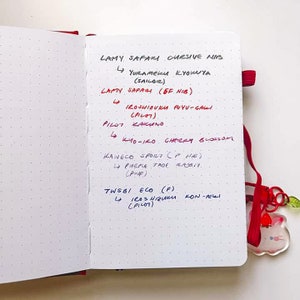 LAMY SAFARI CURSIVE NIB
↳ YURAMEKU KYOKUYA
(SAILOR)
LAMY SAFARI (EF NIB)
↳ IROSHIZUKU FUYU-GAKI
(PILOT)
PILOT KAKUNO
↳ KYO-IRO CHERRY BLOSSOM
KAWECO SPORT (F NIB)
↳ PURPLE
TWSBI ECO (F)
↳ IROSHIZUKU KON-PEKI
(PILOT)